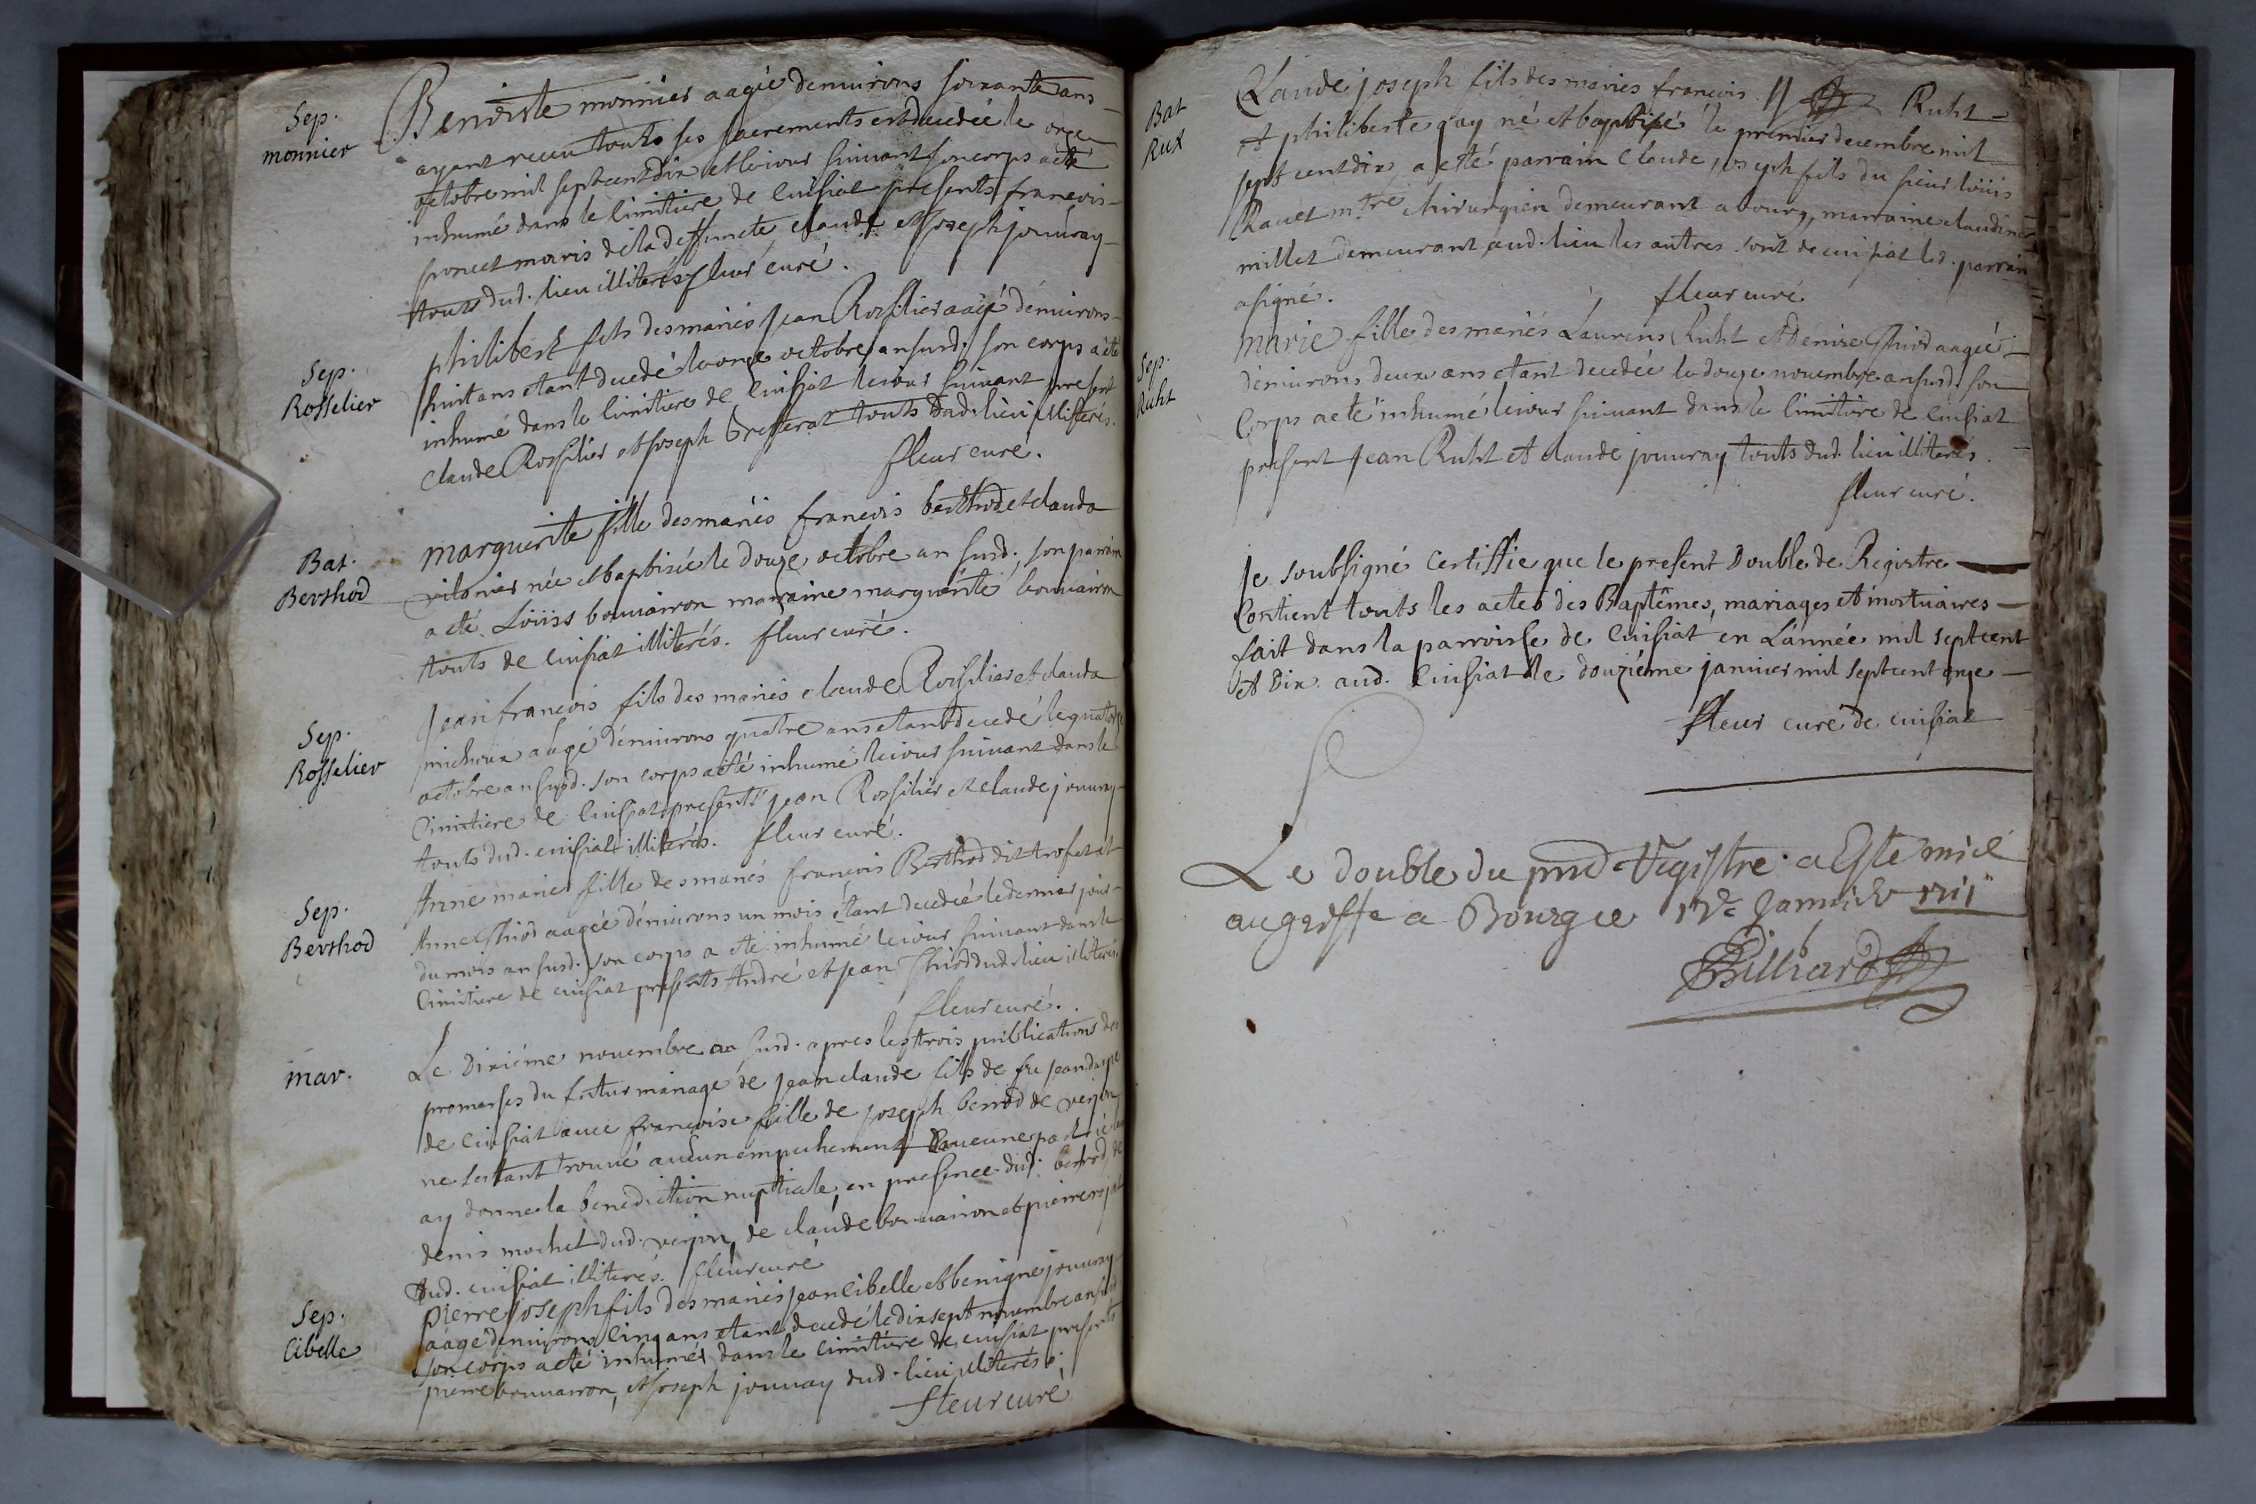 Sep.
monnier
Benoiste monnier aagée denuirons soixante ans
ayant receu touts ses sacrements est decedée le onze
octobre mil sept cent dix et le iour suiuant son corps a eté
inhumé dans le cimitiere de Cuisiat presents francois
poncet maris de la deffuncte claude et Joseph jouuray
touts dud. lieu illiterés fleur curé.
Sep.
Rosselier
philibert fils des mariés Jean Rosselier aagé denuirons
huit ans etant decedé le onze octobre an susd. son corps a eté
inhumé dans le cimitiere de Cuisiat le iour suiuant present
claude Rosselier et Joseph touts dud. lieu illiterés.
fleur curé.
Bat.
Berthod
marguerite fille des mariés francois berthod et clauda
née et baptisée le douze octobre an susd. son parrain
a eté Loüis bouuairon marraine marguerite bouuairon
touts de cuisiat illiterés. fleur curé.
Sep.
Rosselier
Jean francois fils des mariés claude Rosselier et clauda
michoux aagé denuirons quatre ans etant decedé le quatorze
octobre an susd. son corps a eté inhumé le iour suiuant dans le
Cimitiere de Cuisiat presents jean Rosselier et claude jouuray
touts dud. cuisiat illiterés. fleur curé.
Sep.
Berthod
Anne marie fille des mariés francois Berthod dit
Anne Thiod aagée denuirons un mois étant decedée le dernier jour
du mois an susd. son corps a eté inhumé le iour suiuant dans le
Cimitiere de cuisiat presents André et Jean Thiod dud. lieu illiterés
fleur curé.
mar.
Le Dixiéme nouembre an susd. apres les trois publications des
promesses du futur mariage de jean claude fils de feu jean
de Cuisiat auec francoise fille de joseph berrod de verjon
ne sestant trouué aucun empechement daucune part je leur
ay donné la benediction nuptiale, en presence dud. berrod, de
denis mochet dud. verjon, de claude bouuairon et pierre
dud. cuisiat illiterés. fleur curé
Sep.
Cibelle
pierre joseph fils des mariés jean Cibelle et benigne jouuray
aagé denuirons cinq ans etant decedé le dix sept nouembre an susd.
son corps a eté inhumé dans le cimitiere de cuisiat presents
pierre bouuairon, et Joseph jouuray dud. lieu illiterés.
fleur curé
Bat
Rux
Claude joseph fils des mariés francois Ruht
et philiberte gay né et baptisé le premier decembre mil
sept cent dix a eté parrain Claude joseph fils du sieur loüis
Rauet mtre chirurgien demeurant a bourg, marraine claudine
millet demeurant aud. lieu les autres sont de cuisiat led. parrain
a signé. fleur curé
Sep.
Ruht
Marie fille des mariés Laurens Ruht et Denise Thiod aagée
denuirons deux ans etant decedée le douze nouembre an susd. son
Corps a eté inhumé le iour suiuant dans le cimitiere de Cuisiat
present Jean Ruht et claude jouuray touts dud. lieu illiterés.
fleur curé.
Je soubsigné Certiffie que le present Double de Registre
Contient touts les actes des Baptêmes, mariages et mortuaires
fait dans la parroisse de Cuisiat en L'année mil sept cent
et Dix aud. Cuisiat le douziéme januier mil sept cent onze
fleur curé de cuisiat
Le double du pnd Regitre a Esté mis
au greffe a Bourg ce Januier 1711
Billiard